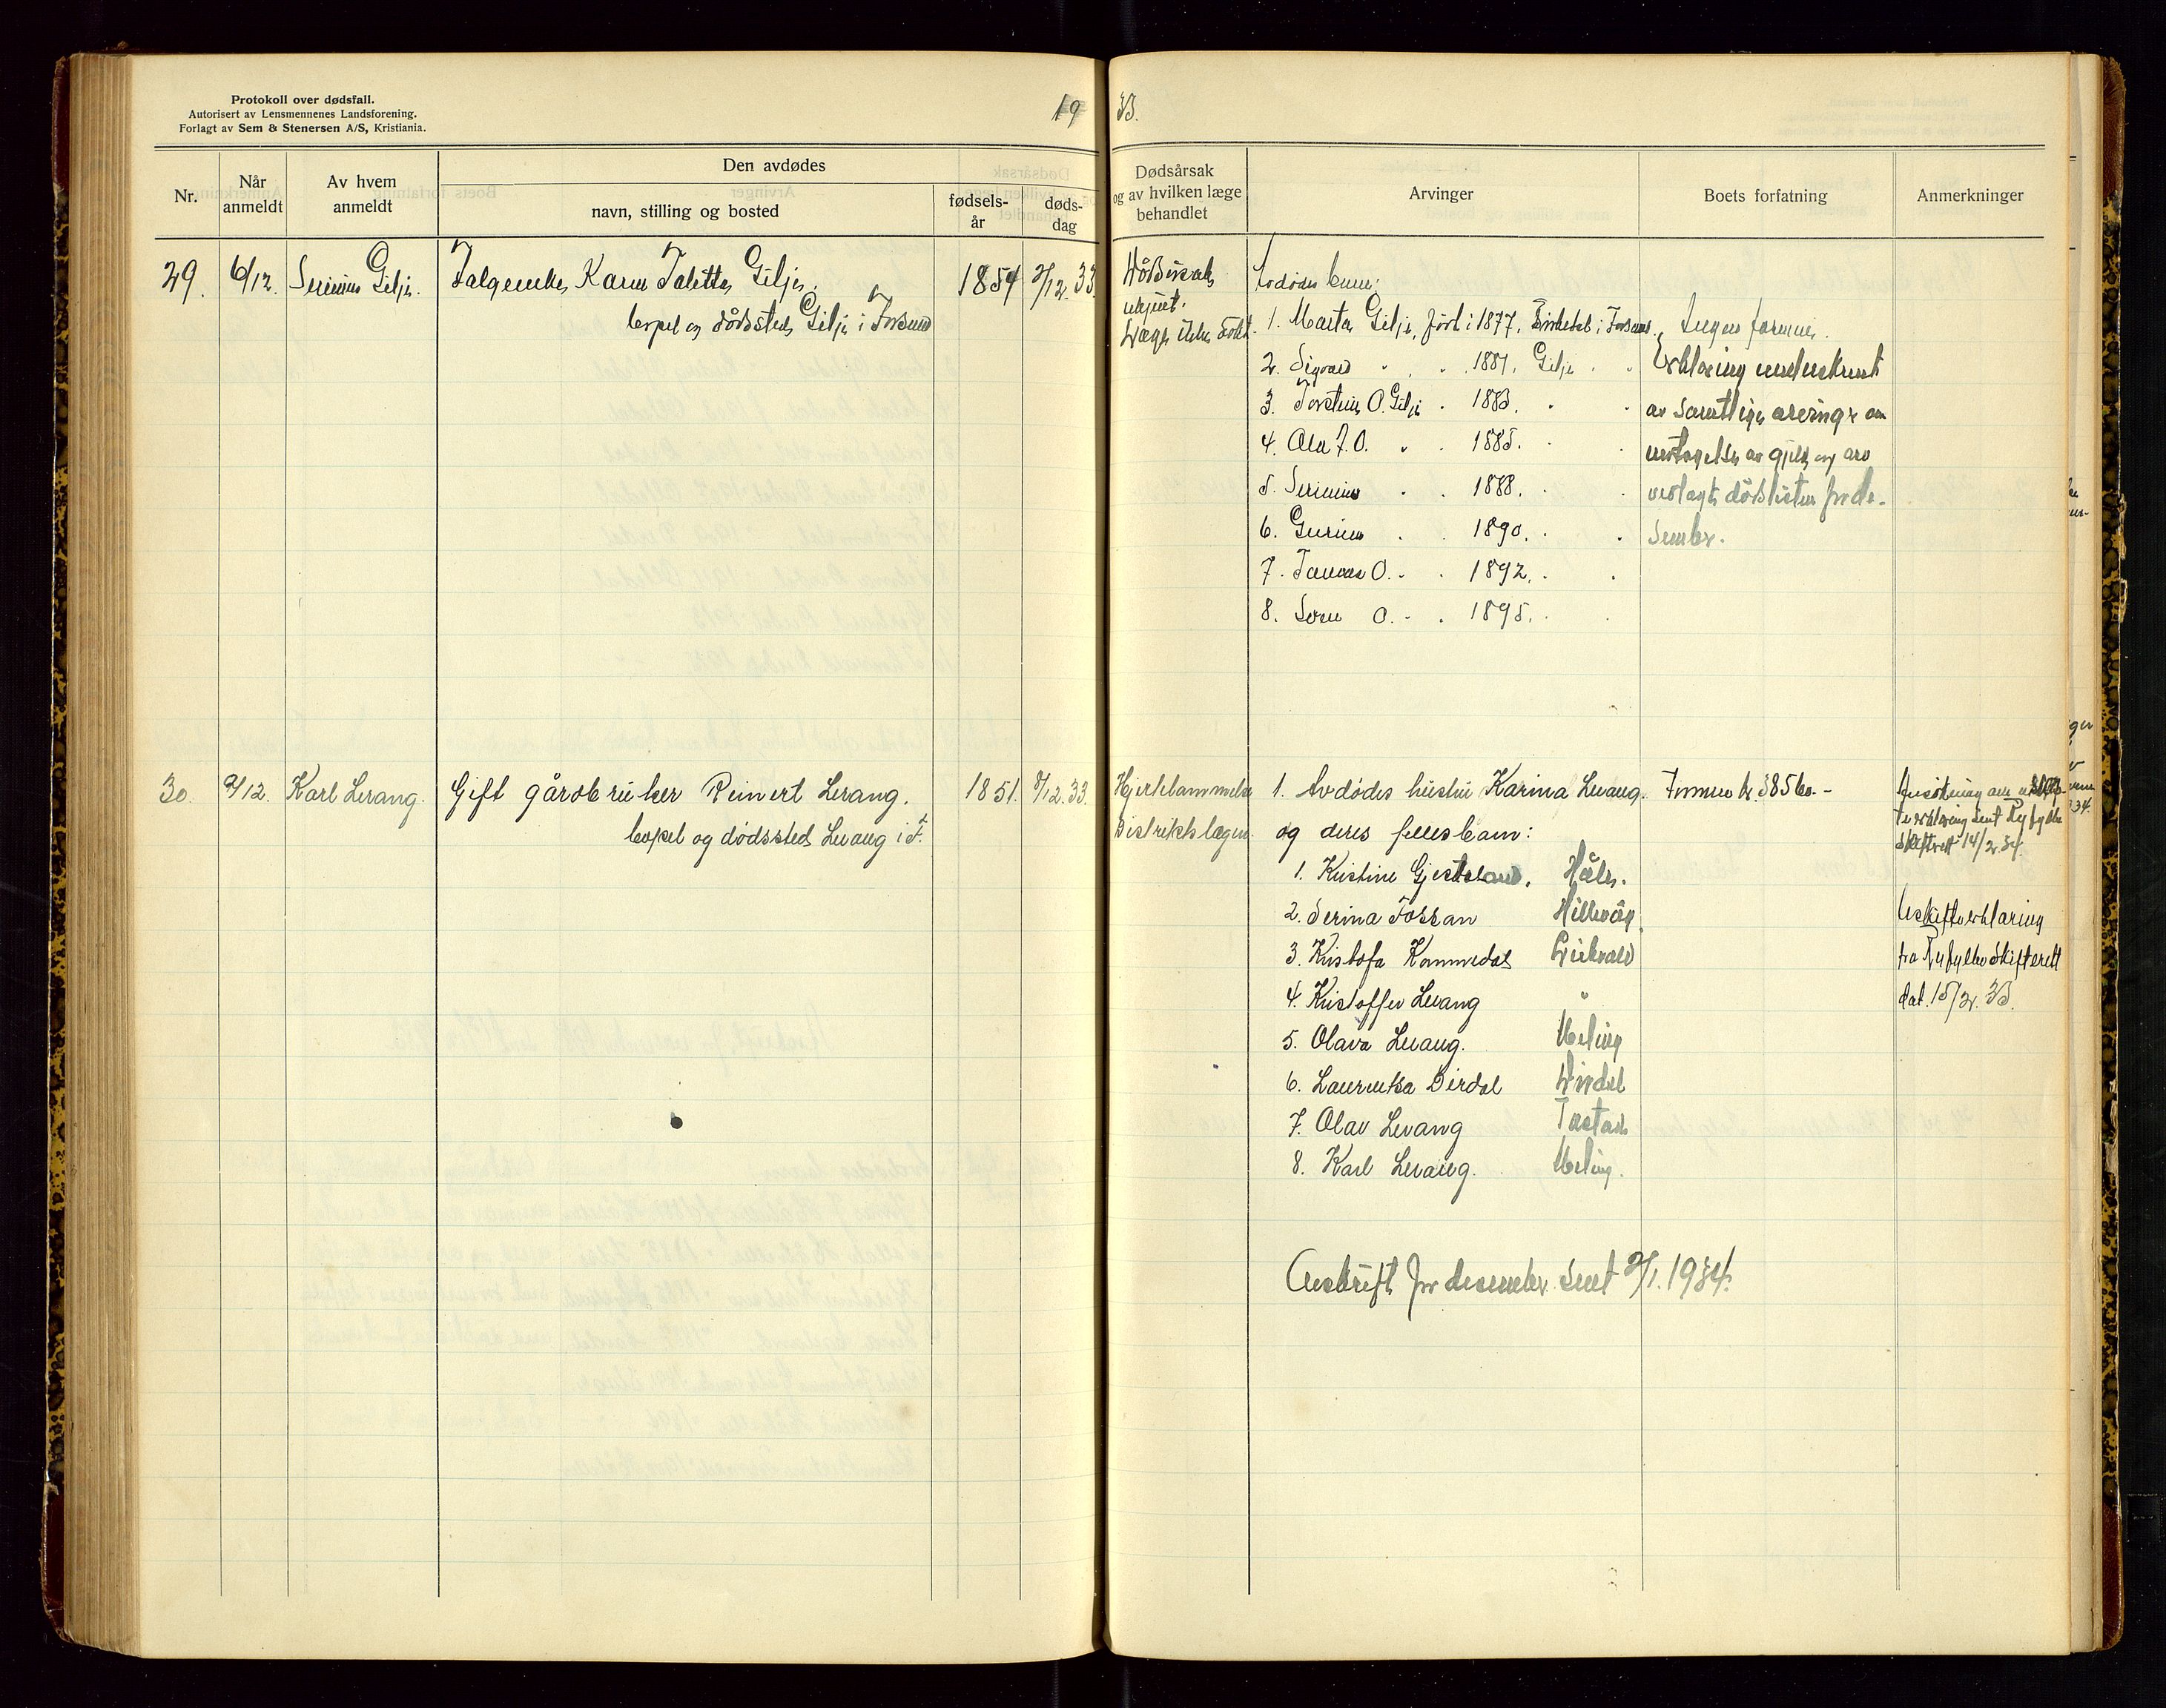 Protokoll over dødsfall.
Autorisert av Lensmennenes Landsforening.
Forlagt av Sem & Stenersen A/S, Kristiania.
19 33.
Nr.
Når anmeldt
Av hvem anmeldt
Den avdødes
navn, stilling og bosted
fødsels-år
døds-dag
Dødsårsak og av hvilken læge behandlet
Arvinger
Boets forfatning
Anmerkninger
29. 6/12. Serinius Gilje. Folgeenke Karen Talette Gilje. 1854 2/12.33.
bopel og dødssted Gilje i Forsand
Dødsårsak
ukjent.
Læge ikke søkt.
Avdødes barn:
1. Marta Gilje, født i 1877. i Forsand.
2. Sigvald " " 1881. Gilje " "
3. Torstein O. Gilje " 1883. " "
4. Ola T. O. " " 1885. " "
5. Serinius " " 1888. " "
6. Gurine " " 1890. " "
7. O. " " 1892. " "
8. Søren O. " " 1895. " "
Ingen formue.
Erklæring underskrevet
av samtlige arvinger om
overtagelse av gjeld og arv
vedlagt dødslisten for de-
sember.
30. 9/12. Karl Levang. Gift gårdbruker Reinert Levang. 1851. 8/12.33.
bopel og dødssted Levang i F.
Hjertelammelse
Distriktslægen.
1. Avdødes hustru Karina Levang.
og deres fellesbarn:
1. Kristine Gjesteland. Håle.
2. Serina Fossan Hillevåg.
3. Kristofa Kommedal
4. Kristoffer Levang "
5. Olava Levang. Meling
6. Laurentsa Dirdal Dirdal
7. Olav Levang Tastad
8. Karl Levang. Meling.
Formue kr. 3856.-
Ansökning om
erklæring sent Ryfylke
Skifterett 14/2.34.
Uskifteerklæring
fra Ryfylke Skifterett
dat. 15/2.
Utskrift for desember sent 2/1.1934.